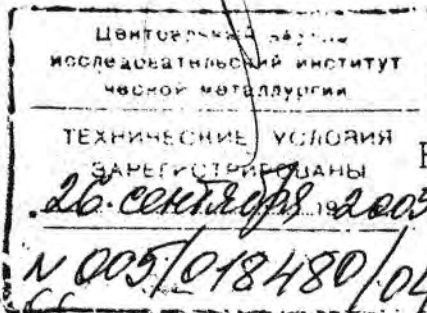 Центральный научно-
исследовательский институт
черной металлургии
ТЕХНИЧЕСКИЕ УСЛОВИЯ
ЗАРЕГИСТРИРОВАНЫ
26. сентября 19 2005
N 005/018480/04